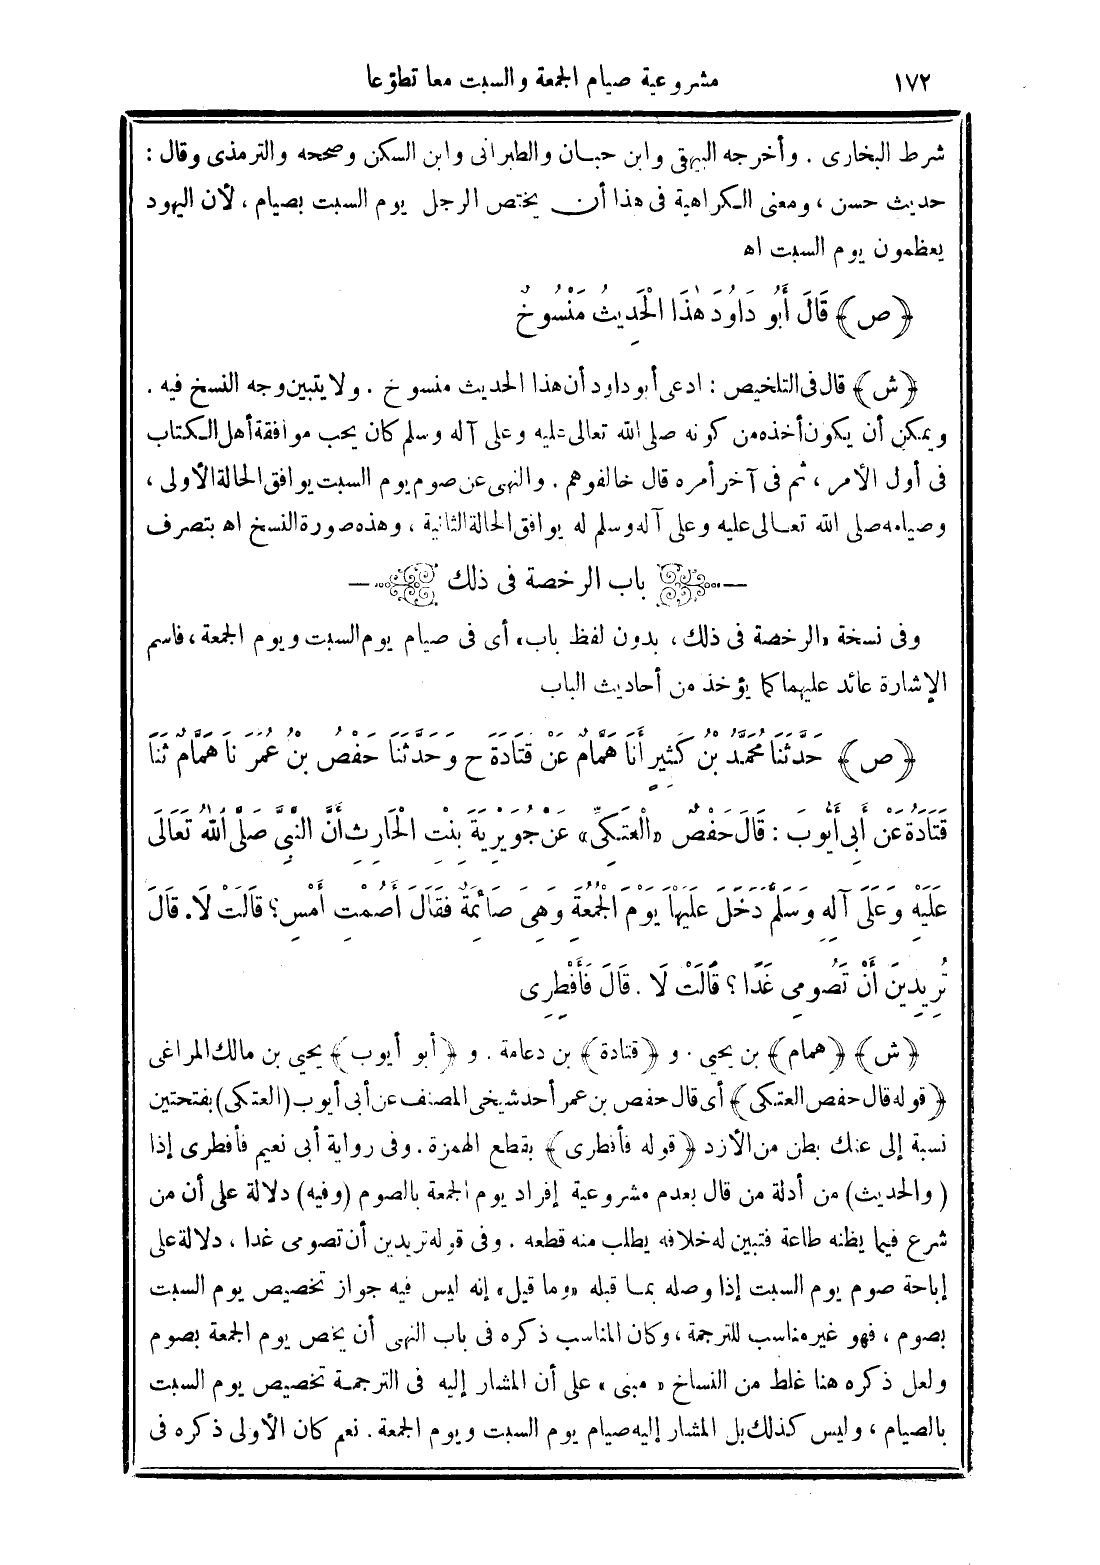 ١٧٢ مشروعية صيام الجمعة والسبت معا تطوّعا
شرط البخارى . وأخرجه البيهقى وابن حبان والطبرانى وابن السكن وصححه والترمذى وقال :
حديث حسن ، ومعنى الكراهية فى هذا أن يختص الرجل يوم السبت بصيام ، لأن اليهود
يعظمون يوم السبت اه
﴿ص﴾ قَالَ أَبُو دَاوُدَ هٰذَا الْحَدِيثُ مَنْسُوخٌ
﴿ش﴾ قال فى التلخيص : ادعى أبو داود أن هذا الحديث منسوخ . ولا يتبين وجه النسخ فيه .
ويمكن أن يكون أخذه من كونه صلى الله تعالى عليه وعلى آله وسلم كان يحب موافقة أهل الكتاب
فى أول الأمر ، ثم فى آخر أمره قال خالفوهم . والنهى عن صوم يوم السبت يوافق الحالة الأولى ،
وصيامه صلى الله تعالى عليه وعلى آله وسلم له يوافق الحالة الثانية ، وهذه صورة النسخ اه بتصرف
باب الرخصة فى ذلك
وفى نسخة «الرخصة فى ذلك ، بدون لفظ باب» أى فى صيام يوم السبت ويوم الجمعة ، فاسم
الإشارة عائد عليهما كما يؤخذ من أحاديث الباب
﴿ص﴾ حَدَّثَنَا مُحَمَّدُ بْنُ كَثِيرٍ أَنَا هَمَّامٌ عَنْ قَتَادَةَ ح وَحَدَّثَنَا حَفْصُ بْنُ عُمَرَ نَا هَمَّامٌ ثَنَا
قَتَادَةُ عَنْ أَبِى أَيُّوبَ : قَالَ حَفْصٌ «الْعَتَكِىِّ» عَنْ جُوَيْرِيَةَ بِنْتِ الْحَارِثِ أَنَّ النَّبِىَّ صَلَّى اللهُ تَعَالَى
عَلَيْهِ وَعَلَى آلِهِ وَسَلَّمَ دَخَلَ عَلَيْهَا يَوْمَ الْجُمُعَةِ وَهِىَ صَائِمَةٌ فَقَالَ أَصُمْتِ أَمْسِ؟ قَالَتْ لَا. قَالَ
تُرِيدِينَ أَنْ تَصُومِى غَدًا ؟ قَالَتْ لَا . قَالَ فَأَفْطِرِى
﴿ش﴾ ﴿همام﴾ بن يحيى . و ﴿قتادة﴾ بن دعامة . و ﴿أبو أيوب﴾ يحيى بن مالك المراغى
﴿قوله قال حفص العتكى﴾ أى قال حفص بن عمر أحد شيخى المصنف عن أبى أيوب (العتكى) بفتحتين
نسبة إلى عتك بطن من الأزد ﴿قوله فأفطرى﴾ بقطع الهمزة . وفى رواية أبى نعيم فأفطرى إذا
(والحديث) من أدلة من قال بعدم مشروعية إفراد يوم الجمعة بالصوم (وفيه) دلالة على أن من
شرع فيما يظنه طاعة فتبين له خلافه يطلب منه قطعه . وفى قوله تريدين أن تصومى غدا ، دلالة على
إباحة صوم يوم السبت إذا وصله بما قبله «وما قيل» إنه ليس فيه جواز تخصيص يوم السبت
بصوم ، فهو غير مناسب للترجمة ، وكان المناسب ذكره فى باب النهى أن يخص يوم الجمعة بصوم
ولعل ذكره هنا غلط من النساخ «مبنى» على أن المشار إليه فى الترجمة تخصيص يوم السبت
بالصيام ، وليس كذلك بل المشار إليه صيام يوم السبت ويوم الجمعة . نعم كان الأولى ذكره فى